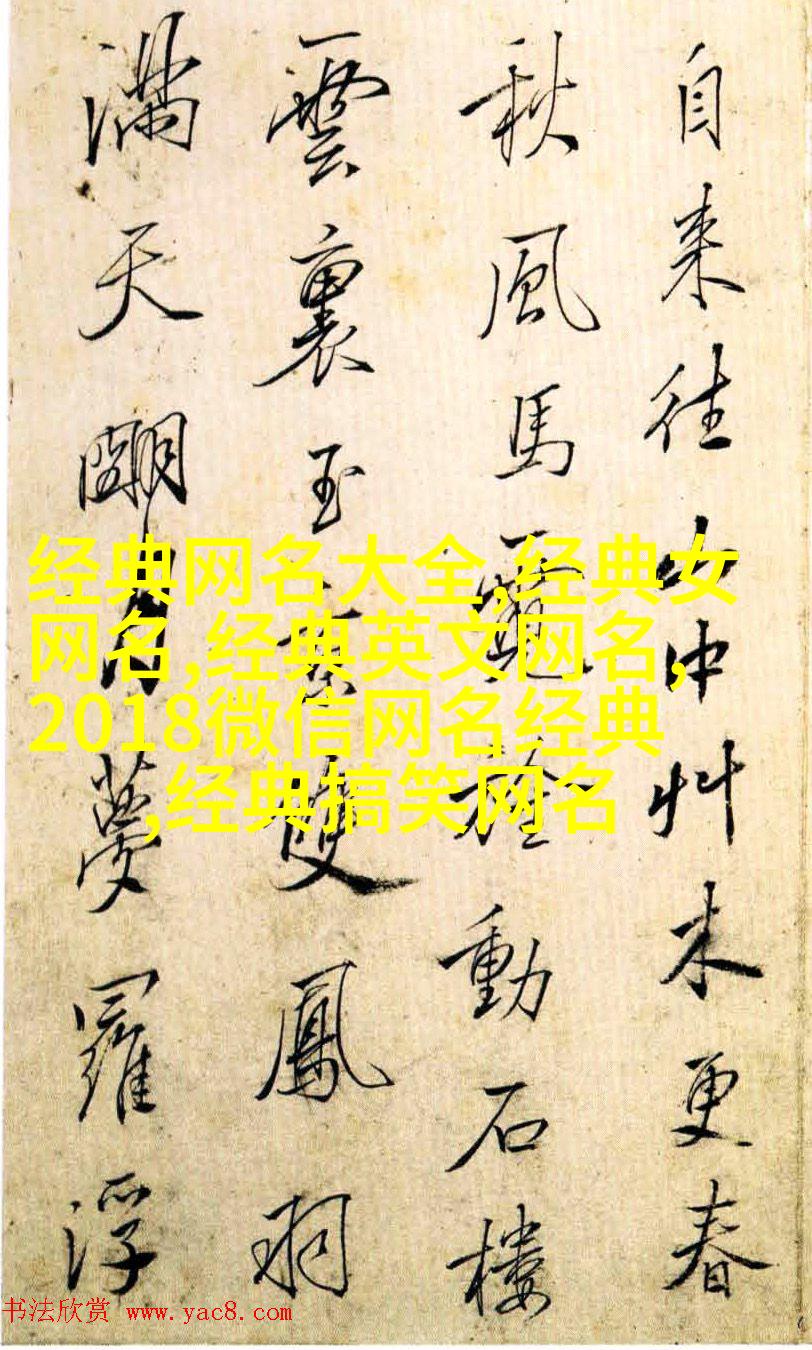 自来往山中艸木更春
秋風馬動石樓
雲裏玉雙鳳羽
滿天月夢羅浮
经典网名大全,经典女
网名,经典英文网名,
2018微信网名经典
,经典搞笑网名
书法欣赏 www.yac8.com